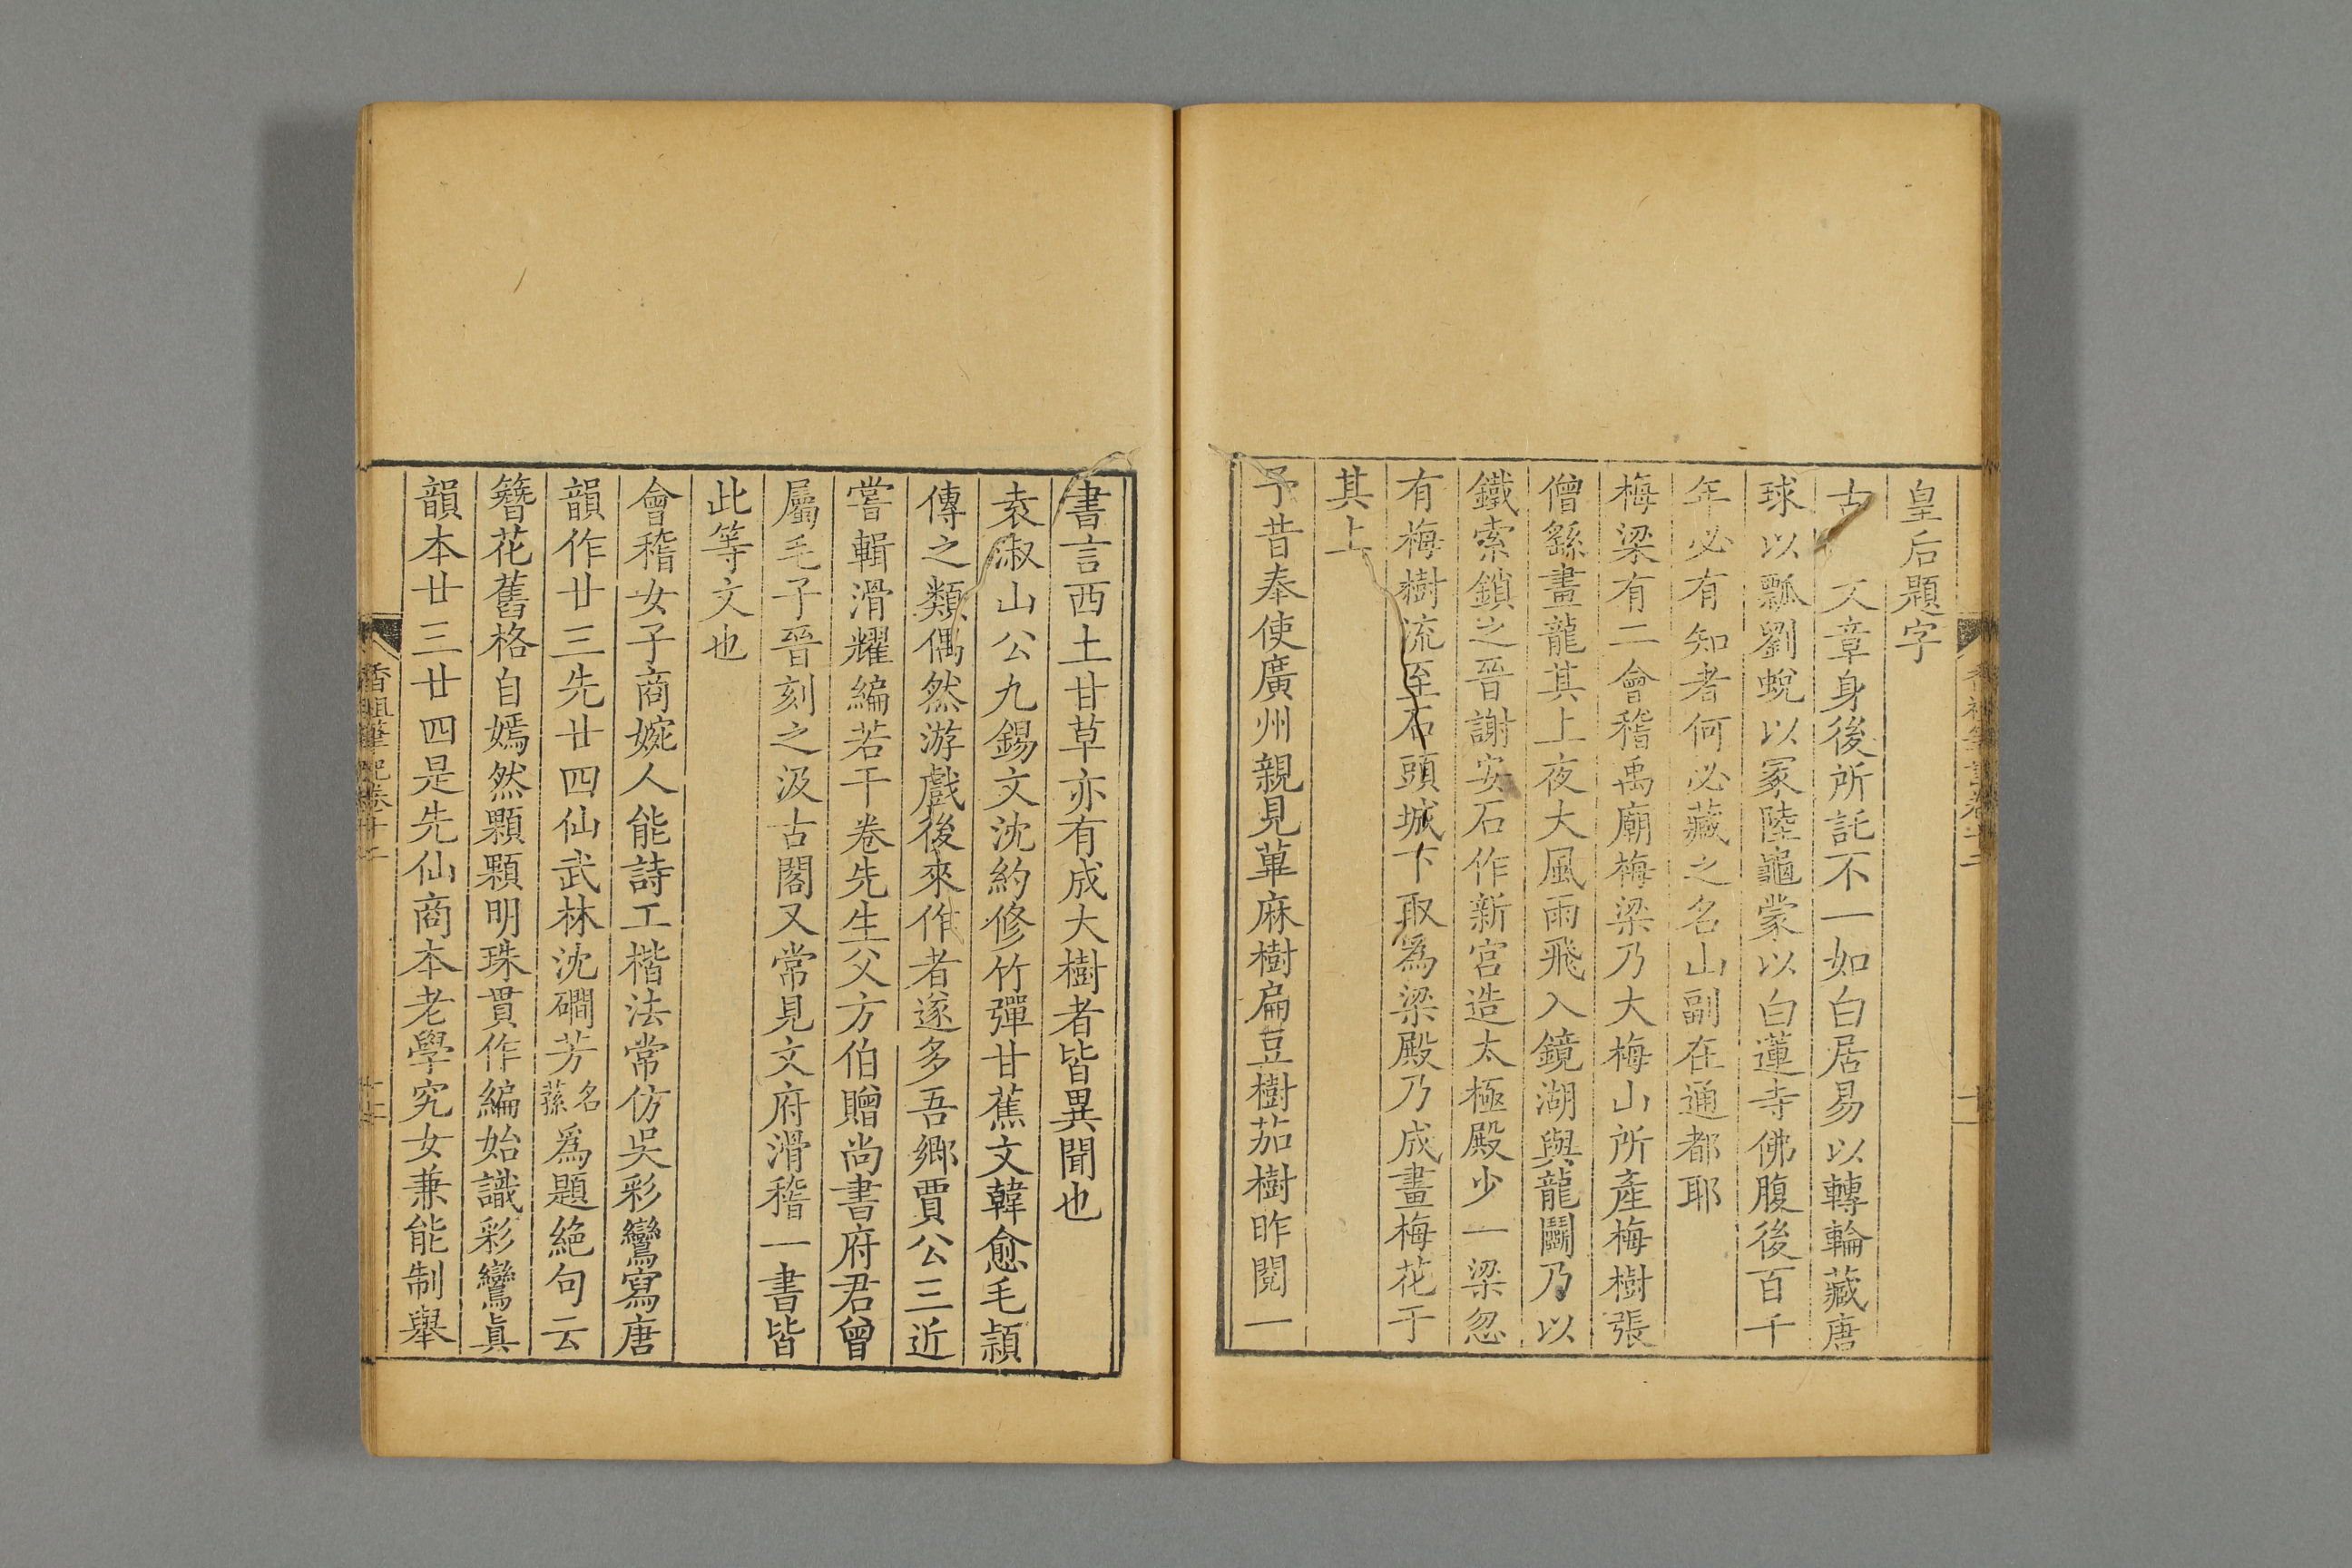 皇后題字
古　文章身後所託不一如白居易以轉輪藏唐
球以瓢劉蛻以冢陸龜蒙以白蓮寺佛腹後百千
年必有知者何必藏之名山副在通都耶
梅梁有二會稽禹廟梅梁乃大梅山所產梅樹張
僧繇畫龍其上夜大風雨飛入鏡湖與龍鬭乃以
鐵索鎖之晉謝安石作新宮造太極殿少一梁忽
有梅樹流至石頭城下取爲梁殿乃成畫梅花于
其上
予昔奉使廣州親見萆麻樹扁豆樹茄樹昨閱一
書言西土甘草亦有成大樹者皆異聞也
袁淑山公九錫文沈約修竹彈甘蕉文韓愈毛頴
傳之類偶然游戲後來作者遂多吾鄉賈公三近
嘗輯滑耀編若干卷先生父方伯贈尚書府君曾
屬毛子晉刻之汲古閣又常見文府滑稽一書皆
此等文也
會稽女子商婉人能詩工楷法常仿吳彩鸞寫唐
韻作廿三先廿四仙武林沈礀芳名蓀爲題絶句云
簪花舊格自嫣然顆顆明珠貫作編始識彩鸞眞
韻本廿三廿四是先仙商本老學究女兼能制舉
香祖筆記卷十二